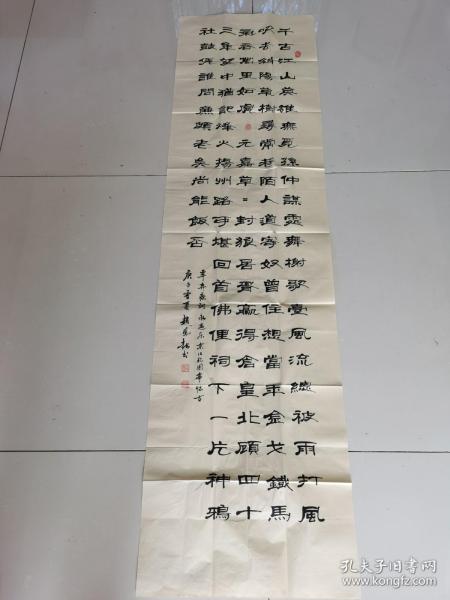 千古江山英雄無覓孫仲謀處舞榭歌臺風流總被雨打風
吹去斜陽草樹尋常巷陌人道寄奴曾住想當年金戈鐵馬
氣吞萬里如虎元嘉草=封狼居胥贏得倉皇北顧四十
三年望中猶記烽火揚州路可堪回首佛狸祠下一片神鴉
社鼓憑誰問廉頗老矣尚能飯否
辛弃疾詞永遇乐京口北固亭怀古
庚子
孔夫子旧书网
www.kongfz.com